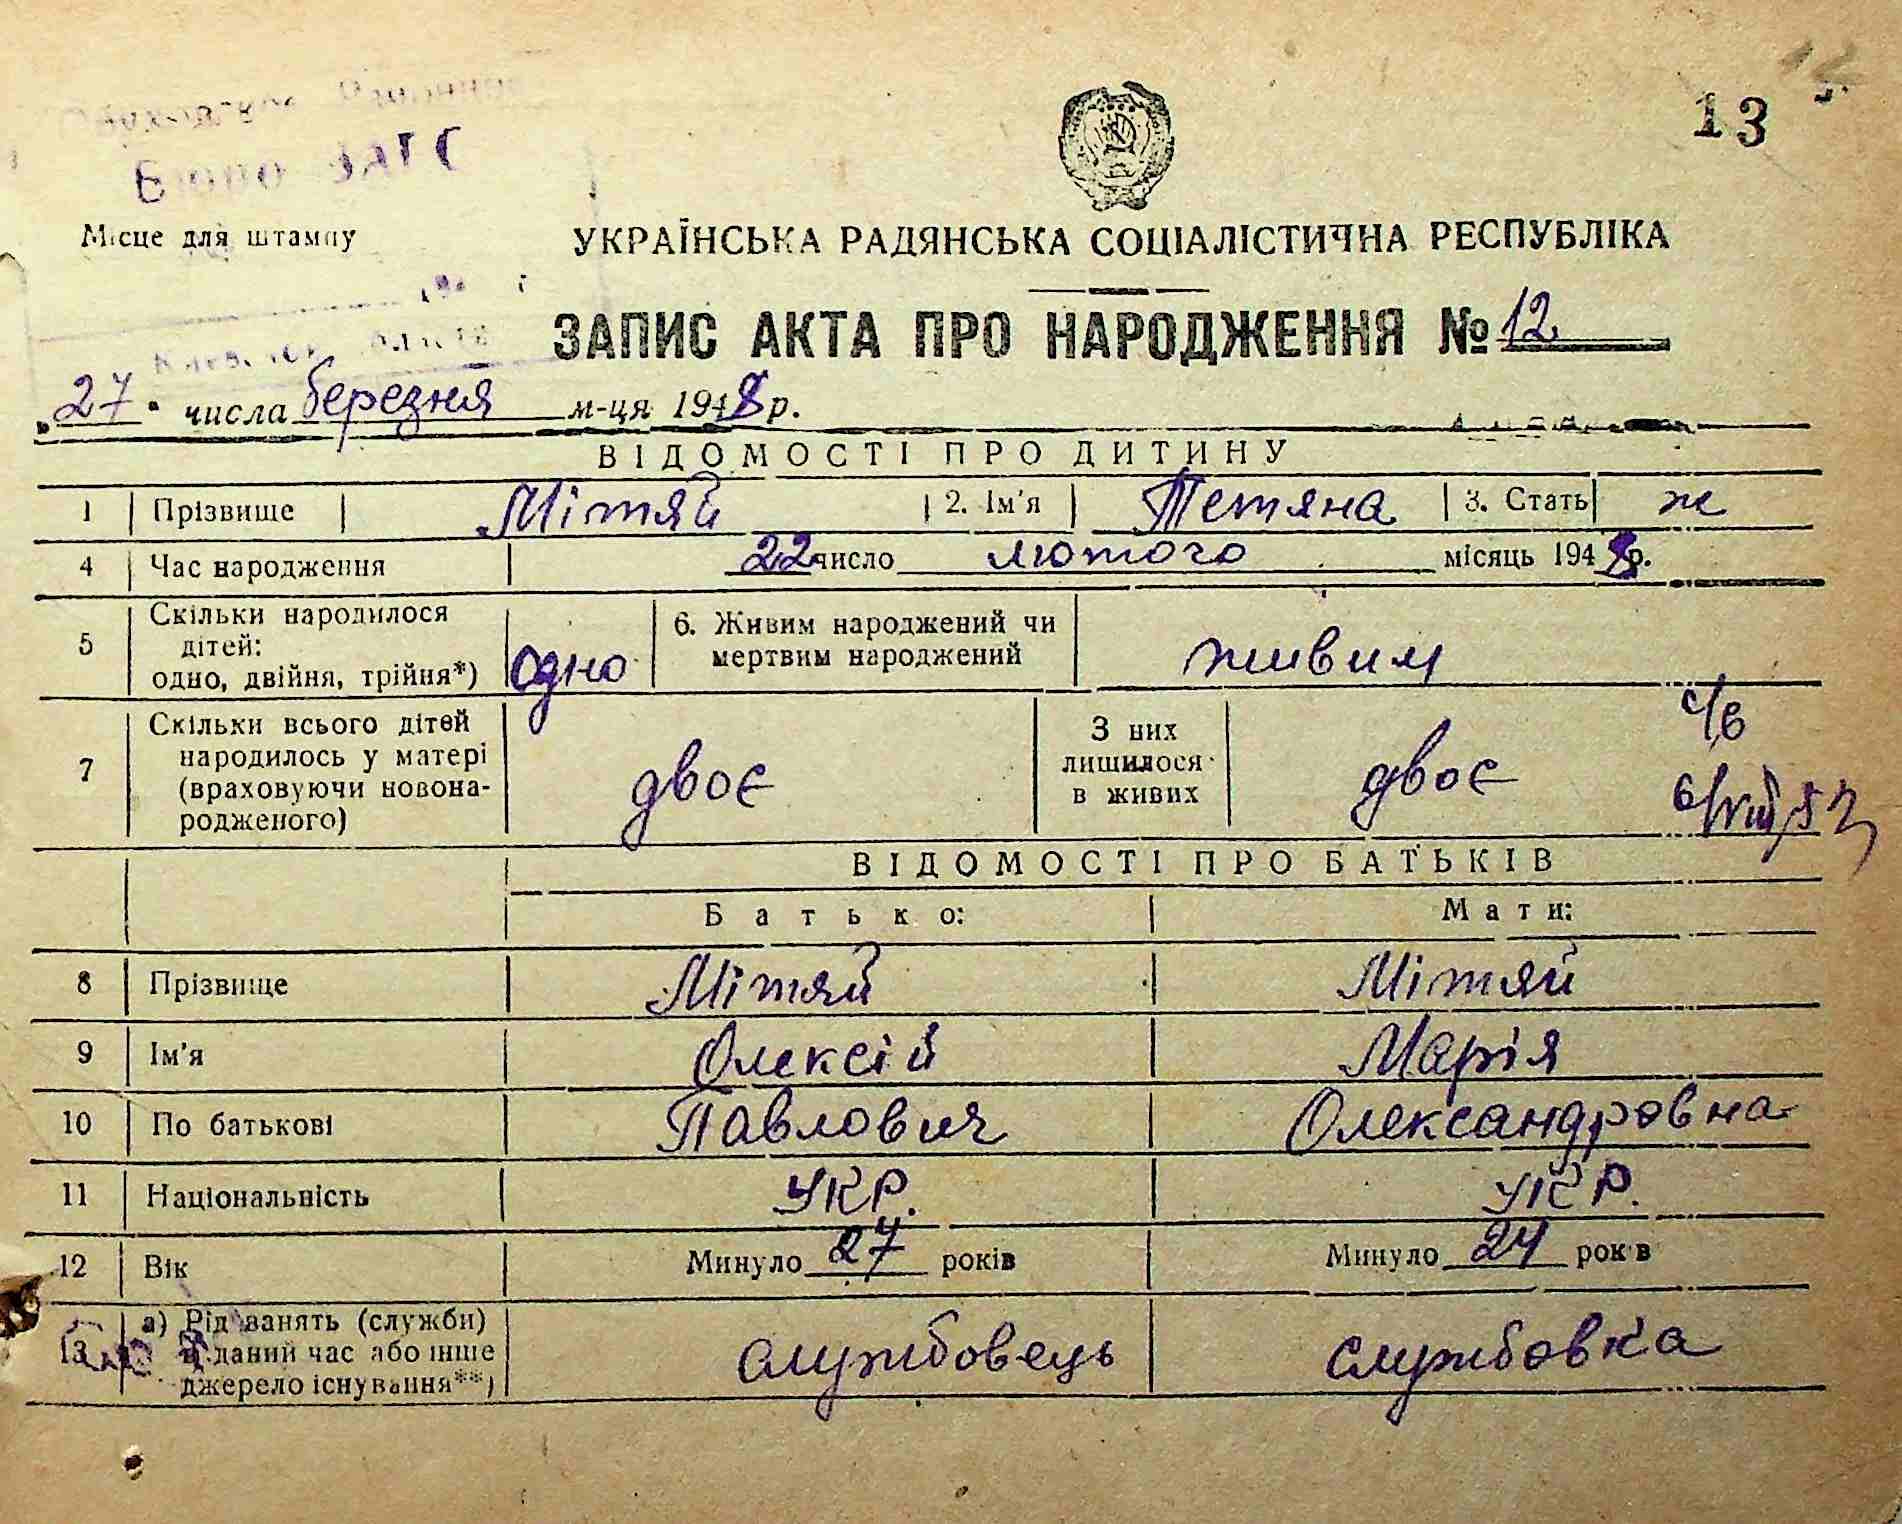 13
Бюро ЗАГС
Місце для штампу
УКРАЇНСЬКА РАДЯНСЬКА СОЦІАЛІСТИЧНА РЕСПУБЛІКА
ЗАПИС АКТА ПРО НАРОДЖЕННЯ № 12
„27" числа березня м-ця 1948 р.
ВІДОМОСТІ ПРО ДИТИНУ
1 Прізвище Мітяй 2. Ім'я Тетяна 3. Стать ж
4 Час народження 22 число лютого місяць 1948 р.
5 Скільки народилося дітей: одно, двійня, трійня*) одно 6. Живим народжений чи мертвим народжений живим
7 Скільки всього дітей народилось у матері (враховуючи новонародженого) двоє З них лишилося в живих двоє
ВІДОМОСТІ ПРО БАТЬКІВ
Батько: Мати:
8 Прізвище Мітяй Мітяй
9 Ім'я Олексій Марія
10 По батькові Павлович Олександровна
11 Національність УКР. УКР.
12 Вік Минуло 27 років Минуло 24 років
13 а) Рід занять (служби) в даний час або інше джерело існування**) службовець службовка